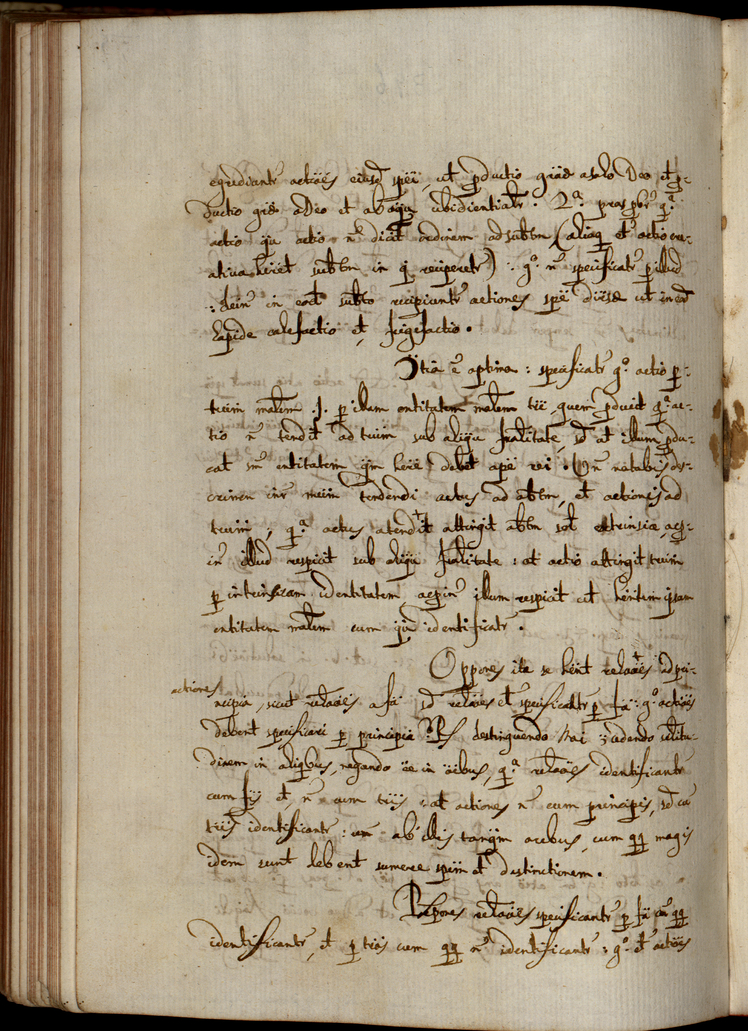 egrediantr actiões eiusd spëi, ut pductio griæ a solo Deo et p-
ductio griæ a Deo et ab aqua obidientialr. 2ª. pros pbr qª.
actio qu actio n dicit ordinem ad subtm (aliaq et actio cre-
ativa heret subtm in q reciperetr) : gº. n specificatr p illud
: dein in eod subto recipiuntr actiones spë diversæ ut in eod
lapide calefactio et frigefactio.
3tia e optima : specificatr gº. actio p-
truim malem .1. p illam entitatem malem tii, quem pducit qª ac-
tio n tendit ad truim sub aliqu fralitate, sd ut illum pdu-
cat sm entitatem qm here debet a pte rei.
crimen inr meim tendendi actus ad obtm, et actionis ad
truim ; qª. actus attingit obtm solt extrinsice, ac p-
in illud respicit sub aliqu fralitate : at actio attingit truim
p intrinsicam identitatem, ac pin illum respicit ut hentem ipsam
entitatem malem cum qu identificatr.
Oppones ita se hent relaões ad pri-
actiones
ncipia, sicut relaões a fä sd relaões et specificantr p fä : gº. actiões
debent specificari p principia. Rs. distinguendo mai ; dando silitu-
dinem in aliqbus, negando ëe in öibus, qª. relaões identificantr
cum fis et n cum tris : at actiones n cum principiis, sd cu
triis identificantr : un ab illis tanqm orebus, cum qq magis
idem sunt debent sumere spëm et distinctionem.
Repones relaões specificantr p fä cu qq
identificantr, et p triis cum qq n identificantr : gº. et actiões